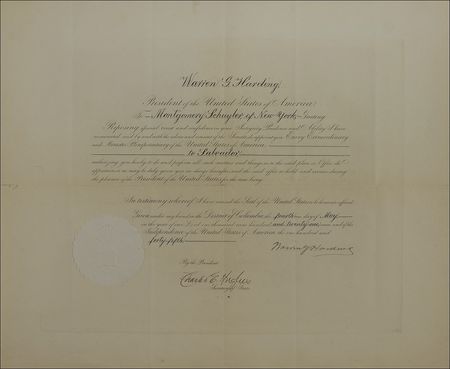 Warren G. Harding
President of the United States of America
To Montgomery Schuyler of New York Greeting
Reposing special trust and confidence in your Integrity Prudence and Ability I have
nominated and by and with the advice and consent of the Senate do appoint you Envoy Extraordinary
and Minister Plenipotentiary of the United States of America
to Salvador
authorizing you hereby to do and perform all such matters and things as to the said place or Office do
appertain or as may be duly given you in charge hereafter and the said office to hold and exercise during
the pleasure of the President of the United States for the time being
In testimony whereof I have caused the Seal of the United States to be hereunto affixed
Given under my hand in the District of Columbia the fourth day of May
in the year of our Lord one thousand nine hundred and twenty-one and of the
Independence of the United States of America the one hundred and
forty fifth
Warren G Harding
By the President
Charles E. Hughes
Secretary of State